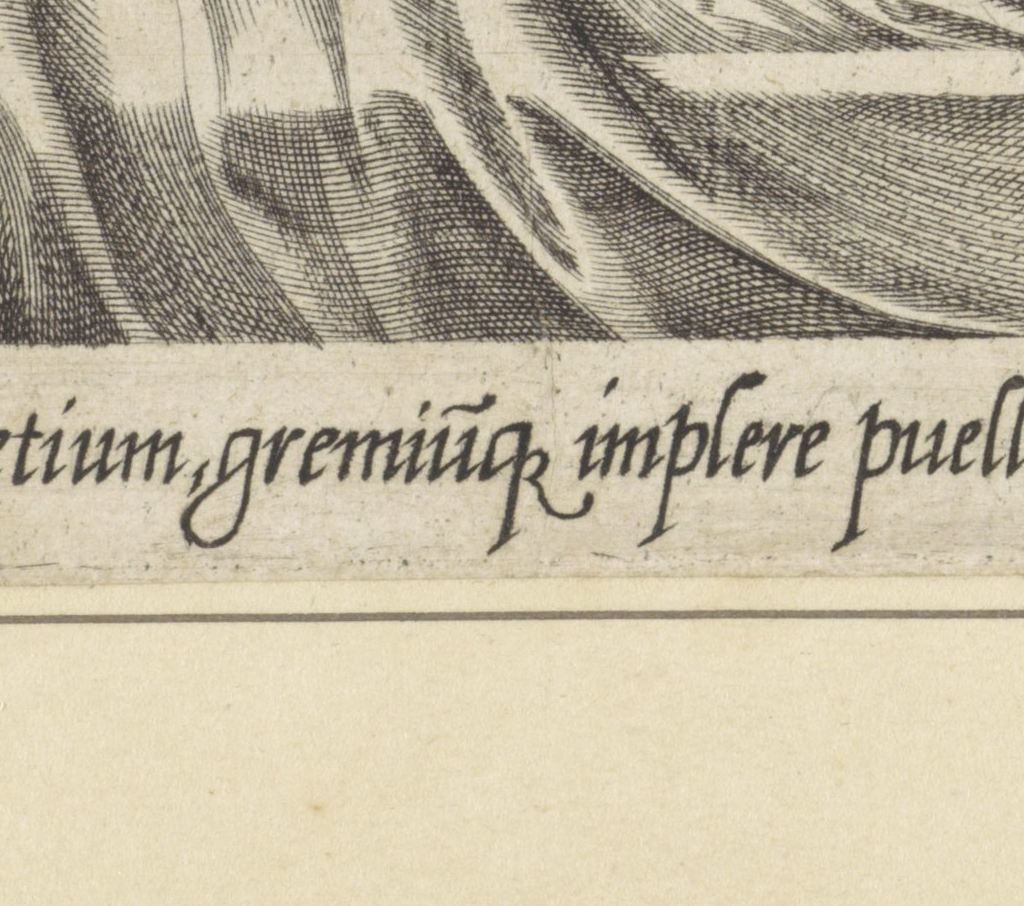 etium, gremiūq implere puell